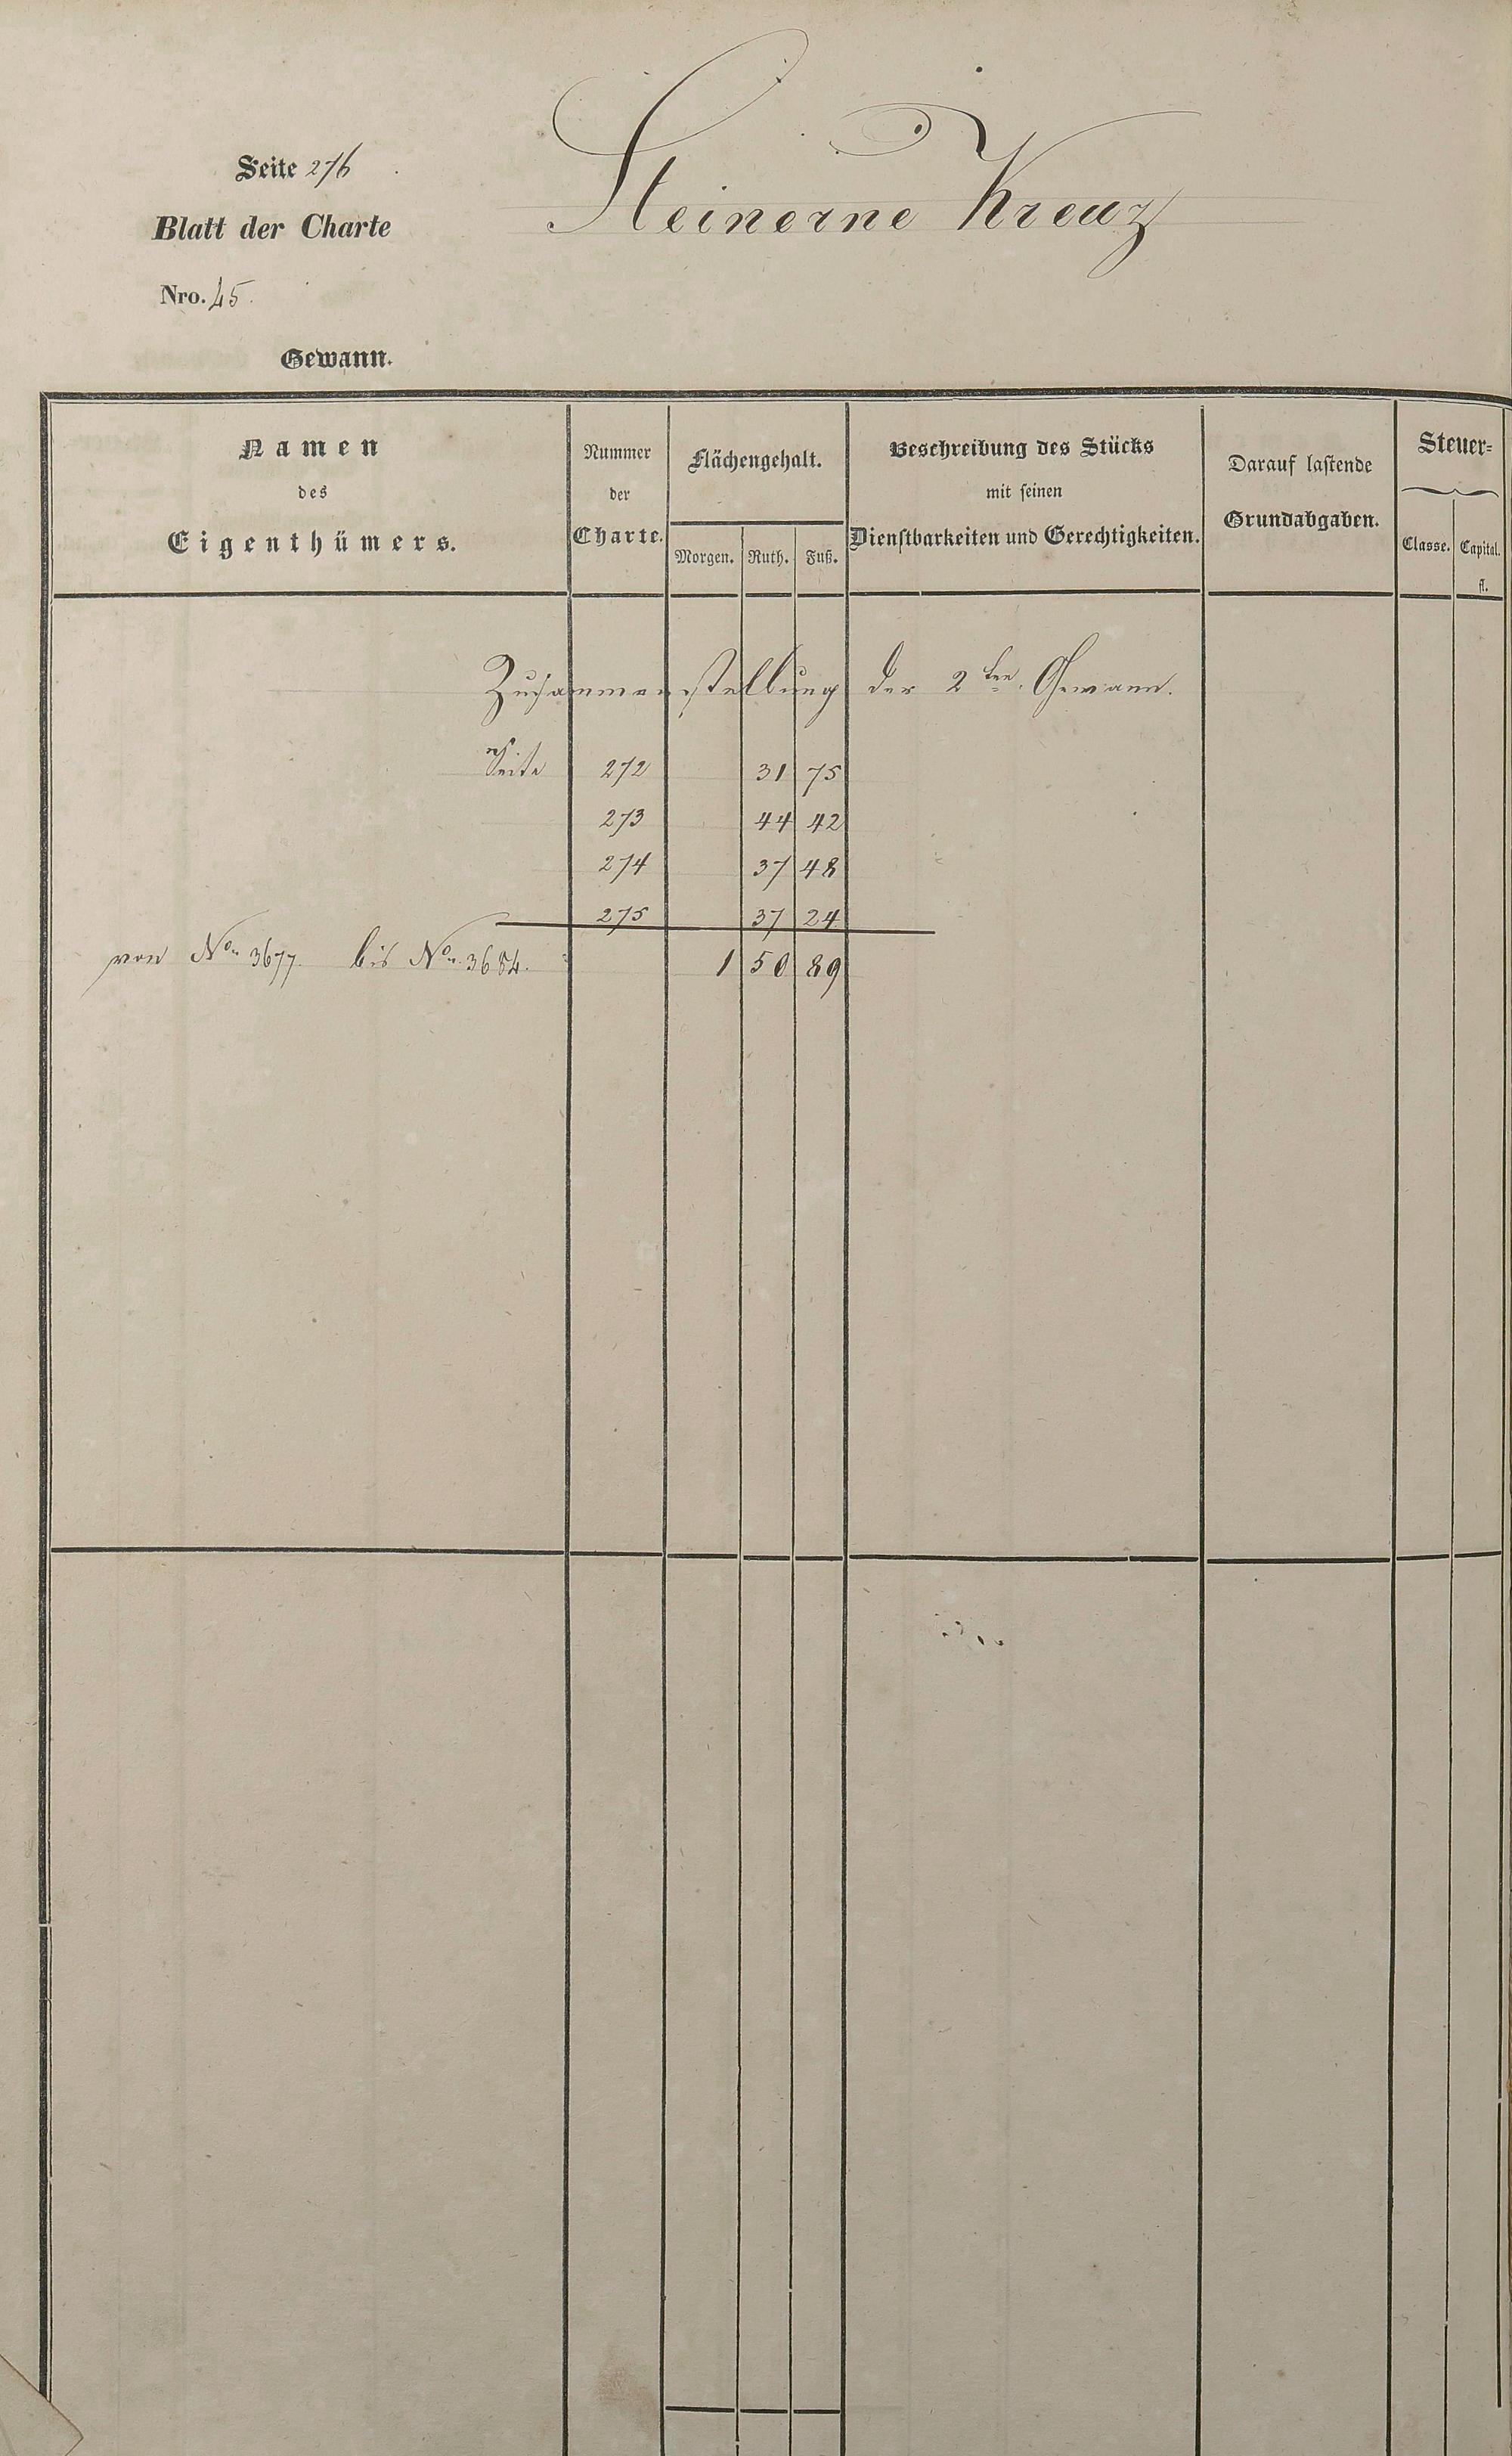 Seite 276
Steinerne Kreuz
Blatt der Charte
Nro. 45.
Gewann.
Namen des Eigenthümers.
Nummer der Charte.
Flächengehalt.
Morgen. Ruth. Fuß.
Beschreibung des Stücks
mit seinen
Dienstbarkeiten und Gerechtigkeiten.
Darauf lastende
Grundabgaben.
Steuer=
Classe. Capital.
fl.
Zusammenstellung der 2ten Gewann.
Seite 272 31 75
273 44 42
274 37 48
275 37 24
von No. 3677. bis No. 3684. 1 50 89